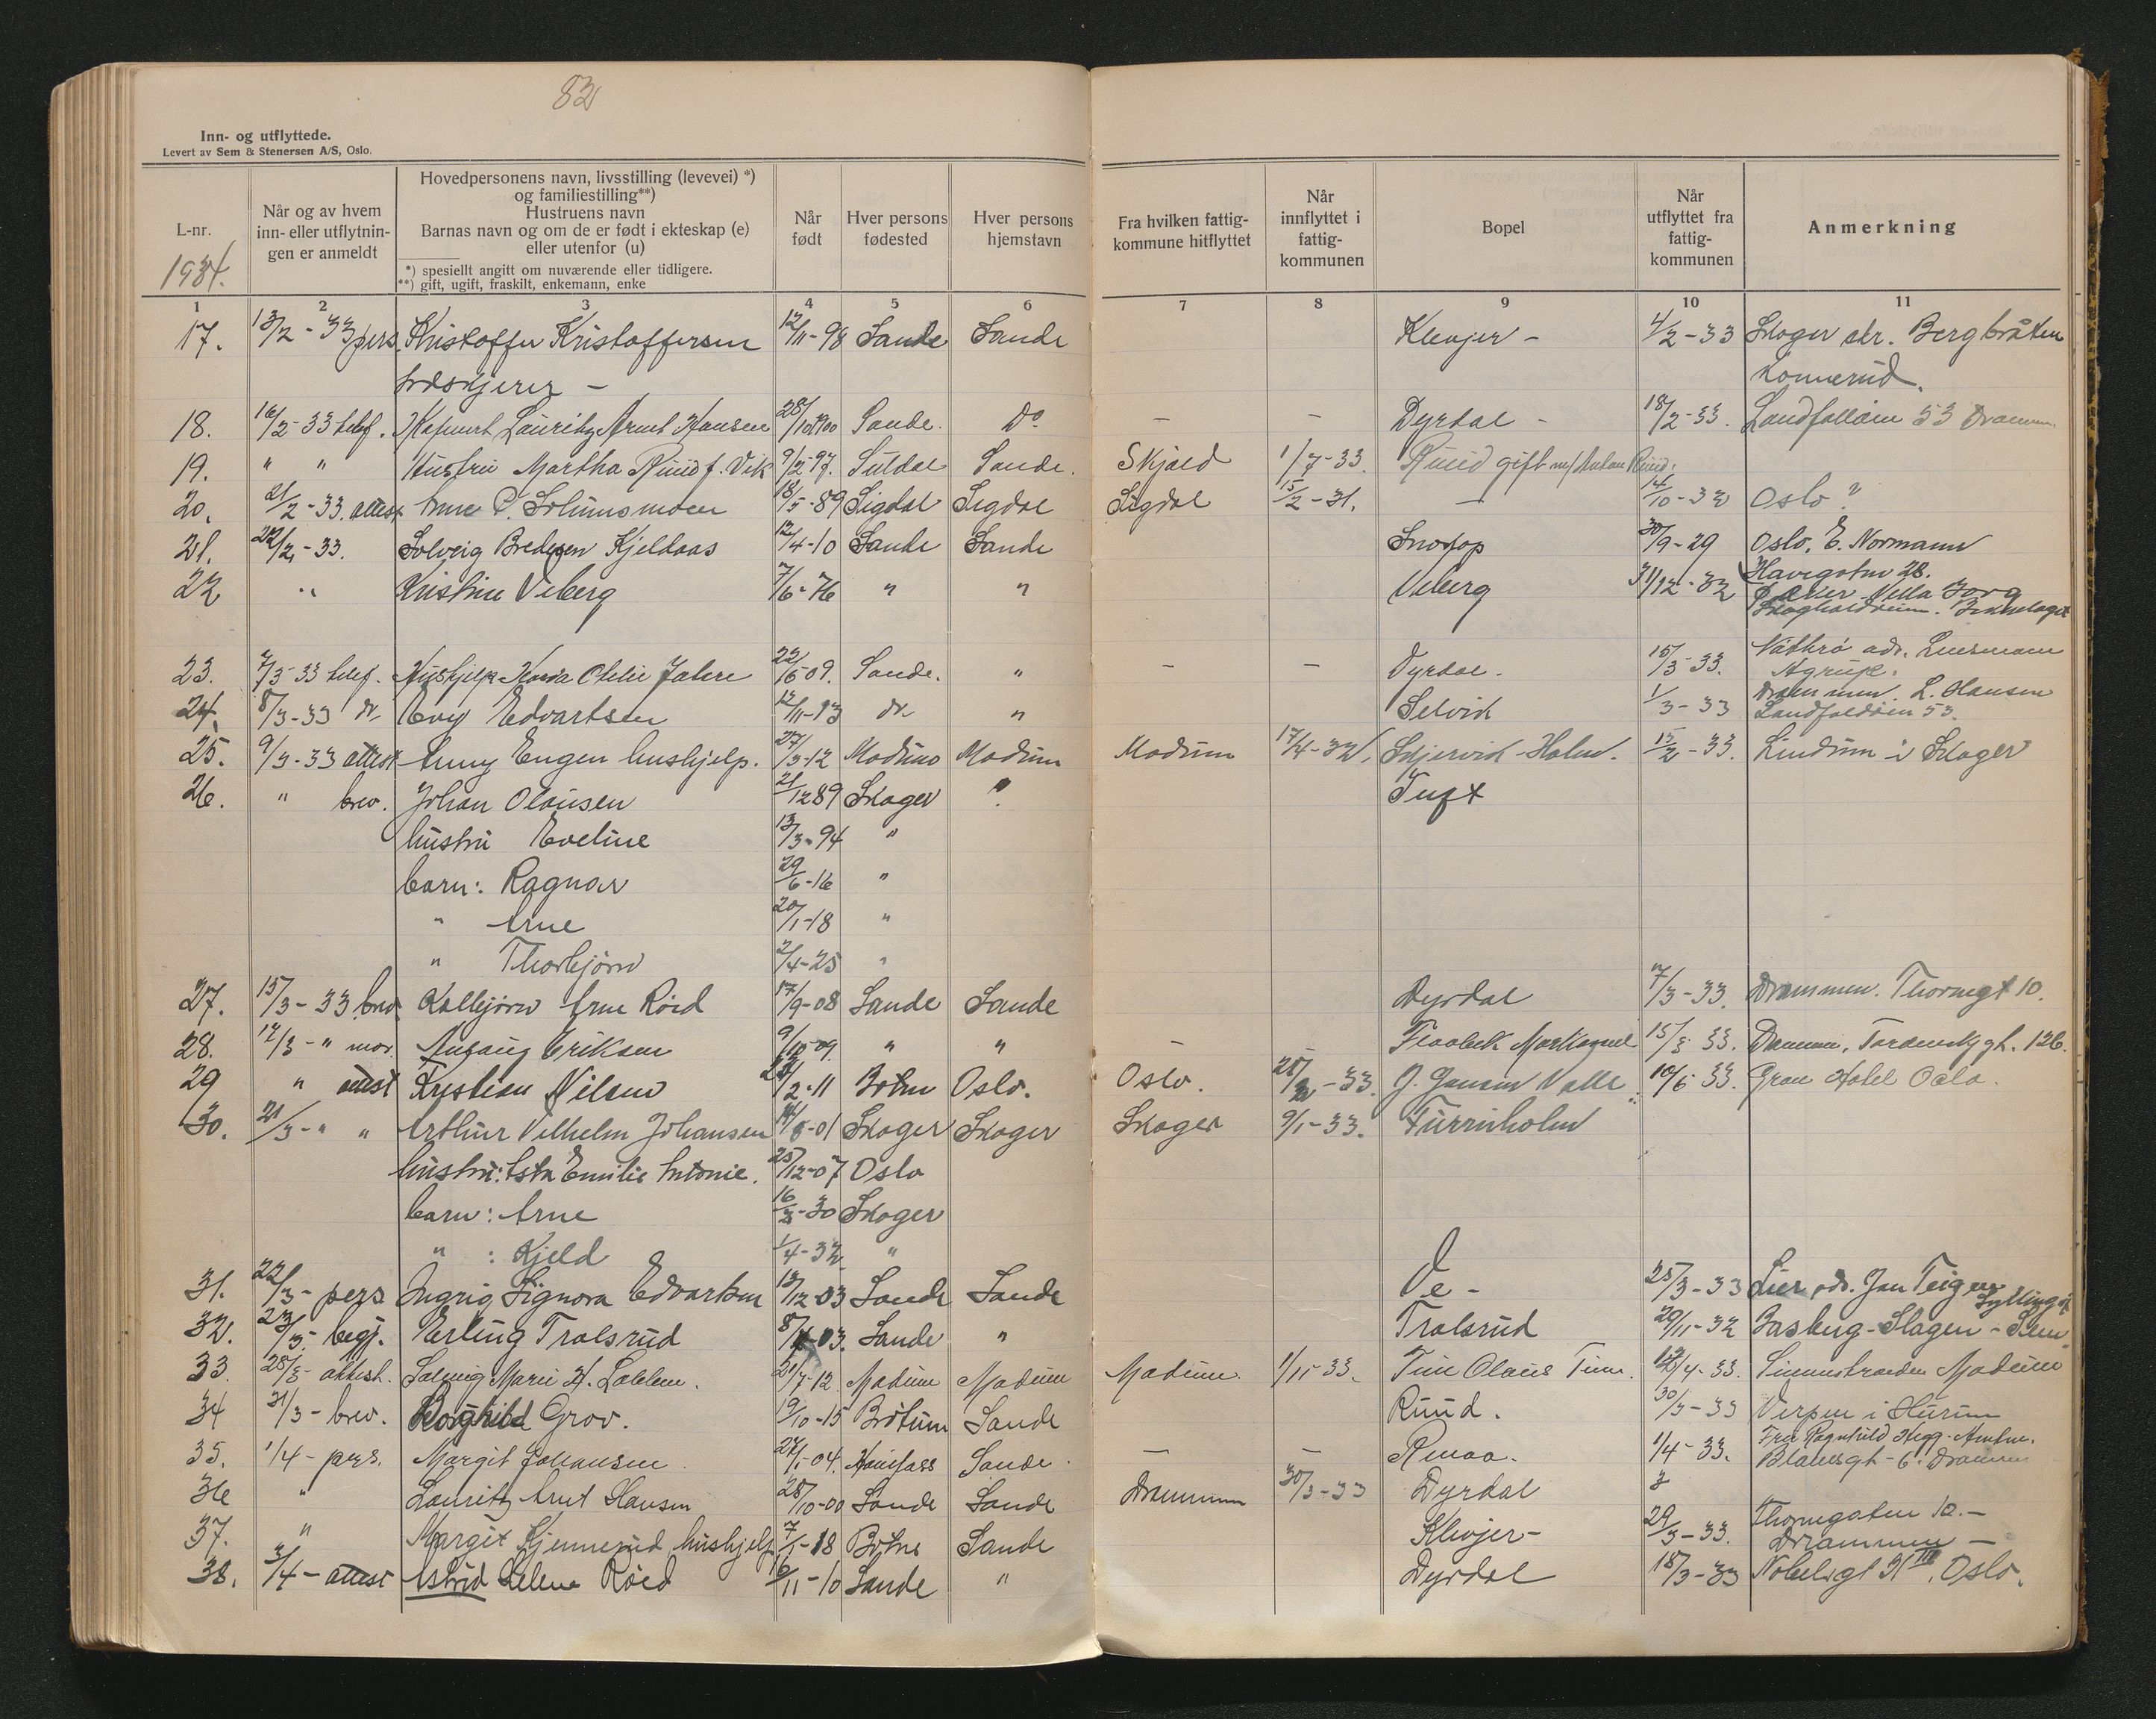 82
Inn- og utflyttede.
Levert av Sem & Stenersen A/S, Oslo.
L-nr.
1934.
Når og av hvem
inn- eller utflytnin-
gen er anmeldt
Hovedpersonens navn, livsstilling (levevei) *)
og familiestilling**)
Hustruens navn
Barnas navn og om de er født i ekteskap (e)
eller utenfor (u)
*) spesielt angitt om nuværende eller tidligere.
**) gift, ugift, fraskilt, enkemann, enke
Når
født
Hver persons
fødested
Hver persons
hjemstavn
Fra hvilken fattig-
kommune hitflyttet
Når
innflyttet i
fattig-
kommunen
Bopel
Når
utflyttet fra
fattig-
kommunen
Anmerkning
1 2 3 4 5 6 7 8 9 10 11
17. 13/2-33 pers. Kristoffer Kristoffersen 12/11-98 Sande Sande Klevjer - 4/2-33 Skoger adr. Bergbråten
Konnerud.
18. 16/2-33 telef. Lauritz Arnt Hansen 28/10 1900 Sande. Do - - Dyrdal - 18/2-33. Landfalløien 53 Drammen
19. " " Hustru Martha Ruud f. Vik 9/2-97. Suldal Sande. Skjold 1/7-33. Ruud gift m/ Anton Ruud.
20. 21/2-33. attest P. Solumsmoen 18/5-89 Sigdal Sigdal Sigdal 15/2-31. - 14/10-32 Oslo?
21. 22/2-33. Solveig Bredesen Kjeldaas 12/4-10 Sande Sande 30/9-29 Oslo. E. Normann
Havegaten 28.
22 " Kristine Viberg 7/6-76 " " Viberg 31/12-32 Villa Borg
23. 7/3-33 telef. Hushjelp Othilie 22/5-09. Sande. " - - Dyrdal. 15/3-33. Nøtterø adr. Lensmann
24. 8/3-33 do. Evy Edvartsen 12/11-13 do. " Selvik 1/3-33 Drammen. L. Hansen
Landfalløien 53.
25. 9/3-33 attest Anny Engen hushjelp. 27/3-12 Modum Modum Modum 17/4-32. Skjervik-Holm. 15/2-33. Lindum i Skoger
26. " brev. Johan Olausen 21/12 89 Skoger ? Tuft
hustru Eveline 13/3-94 "
barn: Ragnar 29/6-16 "
" Arne 20/1-18 "
" Thorbjørn 2/4-25 "
27. 15/3-33 brev. Kolbjørn Arne Røed 17/9-08 Sande Sande Dyrdal 7/3-33. Drammen. Thornegt 10.
28. 17/3-" mor. Eriksen " " - 15/3 33. Drammen, Tordenskjgt. 126.
29 " attest Kristian Nilsen 2-11 Botne Oslo. Oslo. 28/2-33. J. Jensen Valle 10/6 33. Gran Hotel Oslo.
30. 21/3-" " Arthur Vilhelm Johansen 01 Skoger Skoger Skoger 9/1-33. Furuholm
hustru: Emilie Antonie. 25/12-07 Oslo
barn: Arne 16/3-30 Skoger
" : Kjeld 1/4-32 "
31. 22/3- pers Ingrig Signora Edvartsen 13/12-03 Sande Sande Ve - 25/3-33 Lier adr. Jan Teigen
32. 23/3- begj. Erling Trolsrud 03. Sande " Trolsrud 29/11-32 Basberg-Slagen-Sem
33. 28/3- attest. Solveig Marie H. 21/7-12. Modum Modum Modum 1/11-33. Tuen Olaus Tuen. 12/4-33. Modum
34 31/3-brev. Borghild Grov. 19/10-15 Botne Sande Ruud. 30/3-33 Verpen i Hurum
35. 1/4-pers. Margit Johansen 27/1-04. Sande. - - 1/4-33. Fru Ragnhild
Blakesgt-6. Drammen
36 " Lauritz Arnt Hansen 28/10-00 Sande Sande Drammen 30/3-33 Dyrdal
37. " Margit Kjennerud hushjelp 7/1-18 Botne Sande Klevjer- 29/3-33. Thornegaten 10.-
Drammen -
38. 3/4-attest Astrid Helene Røed 11-10 Sande " Dyrdal 18/3-33 Nobelsgt 31 III, Oslo.